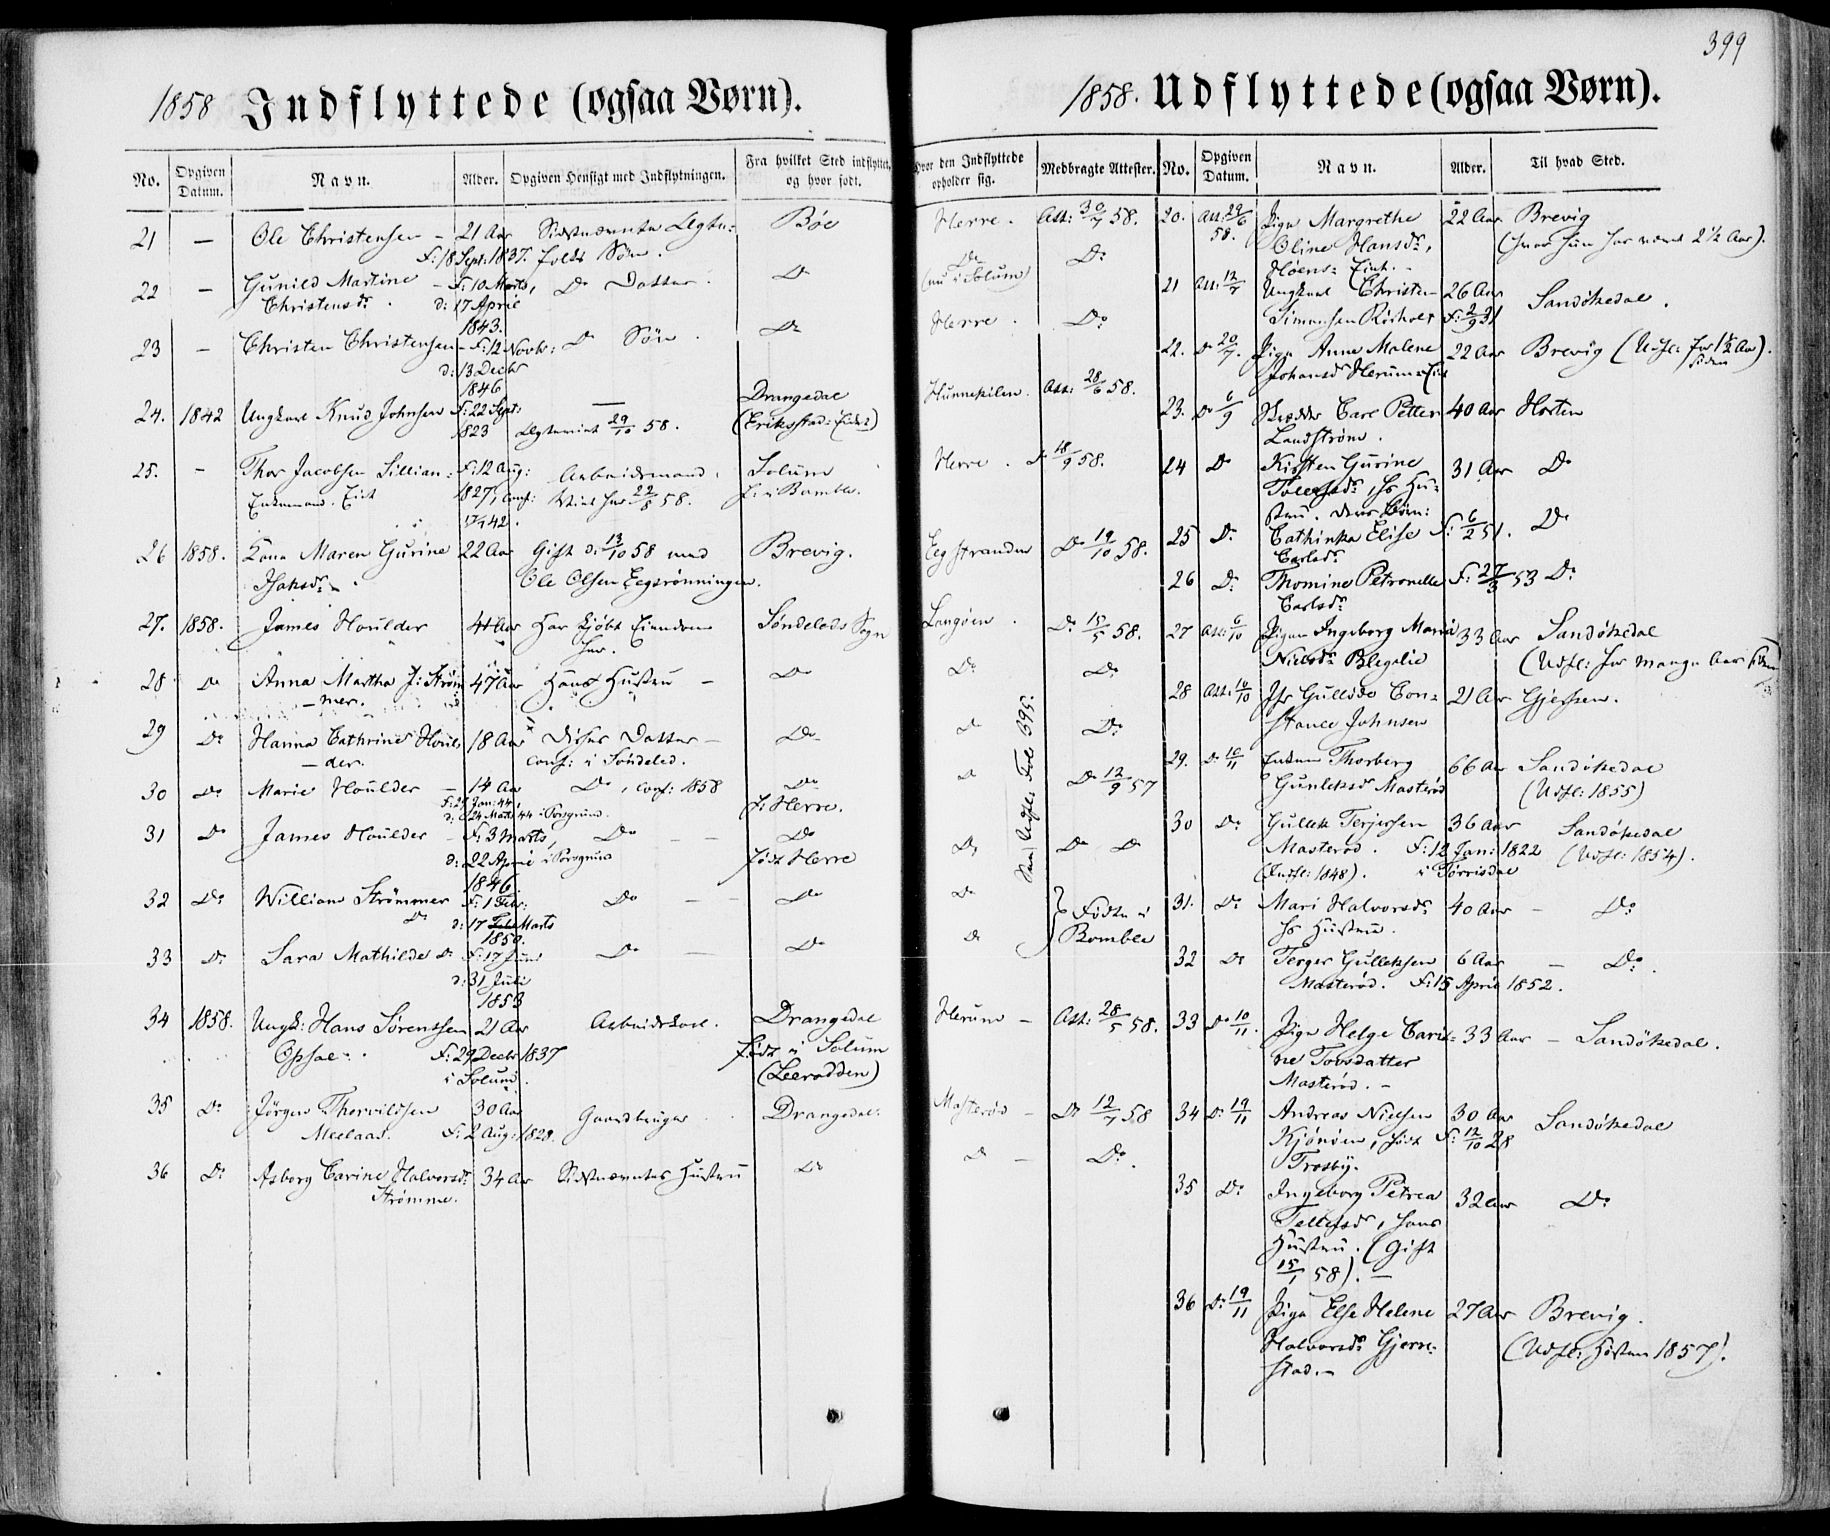 399
1858 Indflyttede (ogsaa Børn).
No. Opgiven Datum. Navn. Alder. Opgiven Hensigt med Indflytningen. Fra hvilket Sted indflyttet, og hvor født. Hvor den Indflyttede opholder sig. Medbragte Attester.
21 — Ole Christensen — 21 Aar Sidstnævnte Ægte= Bøe Herre. Att: 30/7 58.
F: 18 Sept: 1837. folks Søn.
22 — Gunild Martine — F: 10 Marts, Do Datter. Do Do Do
Christensdr. d: 17 April (nu i Solum)
1843.
23 — Christen Christensen — F: 12 Novbr: Do Søn. Do Herre. Do
d: 13 Decbr
1846
24. 1842 Ungkarl Knud Johnsen F: 22 Sept: — Drangedal Hunnekilen. Att: 28/6 58.
1823 Ægteviet 29/10 58. (Erikstad: Eiet)
25. — Thor Jacobsen Lillian= F: 12 Aug: Arbeidsmand. Solum Herre. Do 18/9 58.
Enkemand. Eiet 1827, conf: Viet her 22/8 58. f: i Bamble.
42.
26 1858. Kone Maren Gurine 22 Aar Gift d: 13/10 58 med Brevig. Eegstranden Do 19/10 58.
Isaksdr. Ole Olsen Eegsrønningen.
27. 1858. James Houlder 44 Aar Har kjøbt Eiendom Søndeleds Sogn Langøen. Do 15/5 58.
her.
28 Do Anna Martha f: Strøm 47 Aar Hans Hustru — Do Do Do
—mer.
29 Do Hanna Cathrine Houl 18 Aar Disses Datter — Do Do Do
—der. conf: i Søndeled.
30 Do Marie Houlder — 14 Aar Do, conf: 1858 Do Do Do 12/9 57
F: 27 Jan: 44, f: Herre.
d: 24 Marts 44 i Porsgrund.
31 Do James Houlder — F: 3 Marts, Do — Do Do Do Do
d: 22 April i Porsgrund født Herre
1846.
32 Do William Strømmer F: 1 Febr: Do — Do Do } Fødte i
Do d: 17 Marts
1850.
33 Do Sara Mathilde Do F: 17 Juni Do — Do Do Bamble
d: 31 Juli
1853
34 1858. Ungk: Hans Sørenssen 21 Aar Arbeidskarl. Drangedal Herum — Att: 28/5 58.
Opsal. F: 29 Decbr 1837 født i Solum
i Solum. (Leerodden)
35 Do Jørgen Thorvildsen 30 Aar Gaardbruger. Drangedal. Masterød — Do 12/7 58
Meelaas. F: 2 Aug: 1828.
36 Do Asborg Carine Halvorsdr 34 Aar Sidstnævntes Hustru Do Do — Do
Strømme.
1858. Udflyttede (ogsaa Børn).
No. Opgiven Datum. Navn. Alder. Til hvad Sted.
20. Att: 29/6 Pige Margrethe 22 Aar Brevig
58. Oline Hansdr, (hvor hun har været 2½ Aar).
Høens= Eiet. —
21 Att: 12/7 Ungkarl Christen 26 Aar Sandøkedal.
Simonsen Rørholt F: 2/9 31
22. Do 20/7. Pige Anne Malene 22 Aar Brevig (Udfl: for 1½ Aar).
Johansdr Herum=Eiet siden
23. Do 6/9 Skrædder Carl Petter 40 Aar Horten
Landstrøm.
24 Do Kirsten Gurine 31 Aar Do
Tollefsdr, hs Hu=
stru. Deres Børn:
25 Do Cathinka Elise F: 6/2 51. Do
Carlsdr
26 Do Thomine Petronelle F: 27/3 53 Do
Carlsdr
27 Att: 6/10 Pigen Ingeborg Maria 33 Aar Sandøkedal
Nielsdr Blegalie (Udfl: for mange Aar siden)
28 Att: 10/10 Gullede Con= 21 Aar Gjerpen.
stance Johnsen
29. Do 10/11 Enken Thorberg 66 Aar Sandøkedal
Gunleksdr Masterød (Udfl: 1855)
30 Do Gullek Terjersen 36 Aar Sandøkedal
Masterød. F: 12 Jan: 1822 (Udfl: 1854).
(Indfl: 1848). i Tørrisdal
31. Do Mari Halvorsdr 40 Aar — Do
hs Hustru.
32 Do Terger Gulleksen 6 Aar — Do
Masterød. F: 15 April 1852.
33 Do 10/11. Pige Helge Cari= 33 Aar — Sandøkedal.
ne Tovsdatter
Masterød. —
34 Do 19/11 Andreas Nielsen 30 Aar Sandøkedal
Kjønøen, født F: 12/10 28
Trosby.
35 Do Ingeborg Petrea 32 Aar Do
Tellefsdr, hans
Hustru. (Gift
15/1 58). —
36 Do 19/11 Pige Else Helene 27 Aar Brevig.
Halvorsdr Gjerme= (Udfl: Høsten 1857).
stad. —